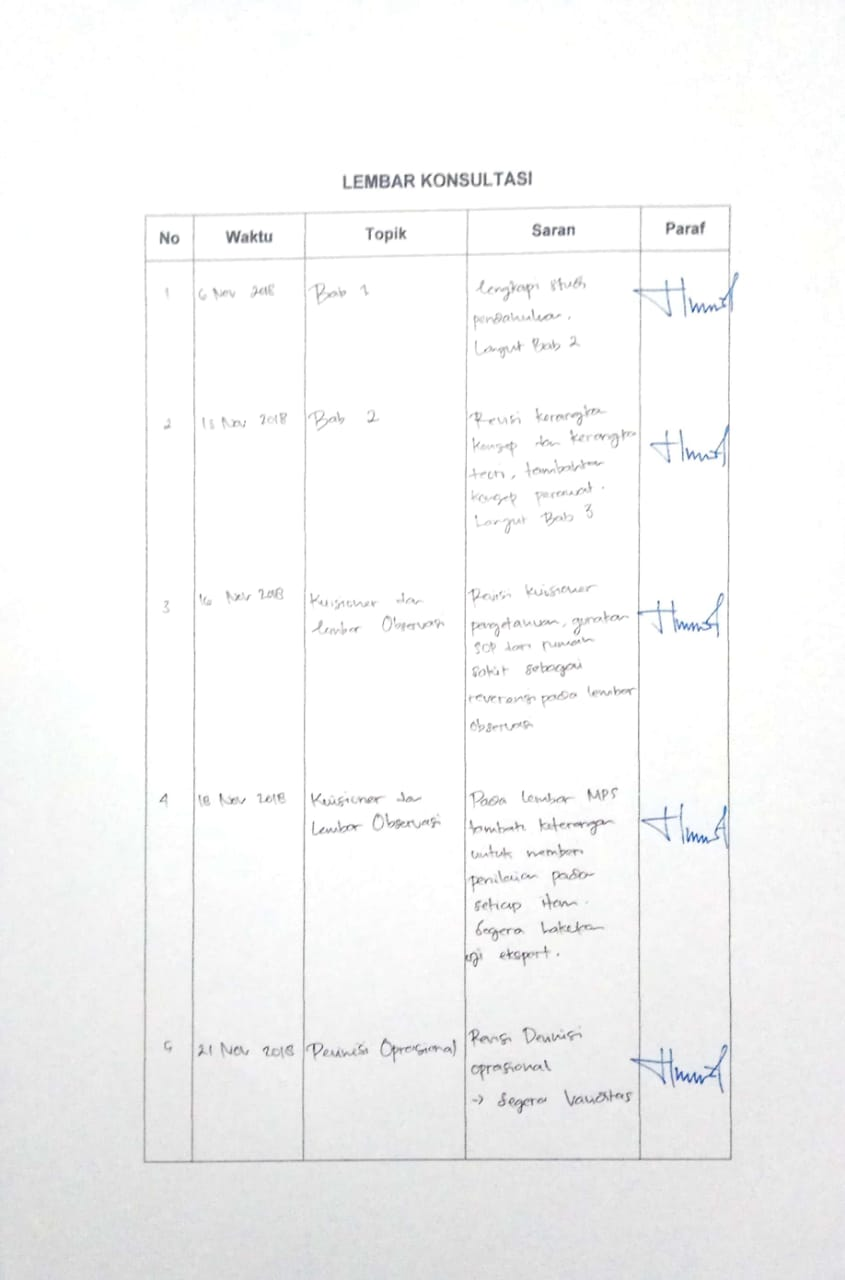 LEMBAR KONSULTASI
No Waktu Topik Saran Paraf
1 6 Nov 2018 Bab 1 lengkapi studi
pendahuluan.
Lanjut Bab 2
2 13 Nov 2018 Bab 2 Revisi kerangka
konsep dan kerangka
teori, tambahkan
konsep perawat.
Lanjut Bab 3
3 16 Nov 2018 Kuisioner dan Revisi kuisioner
lembar Observasi pengetahuan, gunakan
SOP dari rumah
sakit sebagai
reverensi pada lembar
observasi
4 18 Nov 2018 Kuisioner dan Pada lembar MPS
Lembar Observasi tambah keterangan
untuk memberi
penilaian pada
setiap item.
Segera lakukan
uji eksport.
5 21 Nov 2018 Devinisi Oprasional Revisi Devinisi
oprasional
-> Segera Validitas